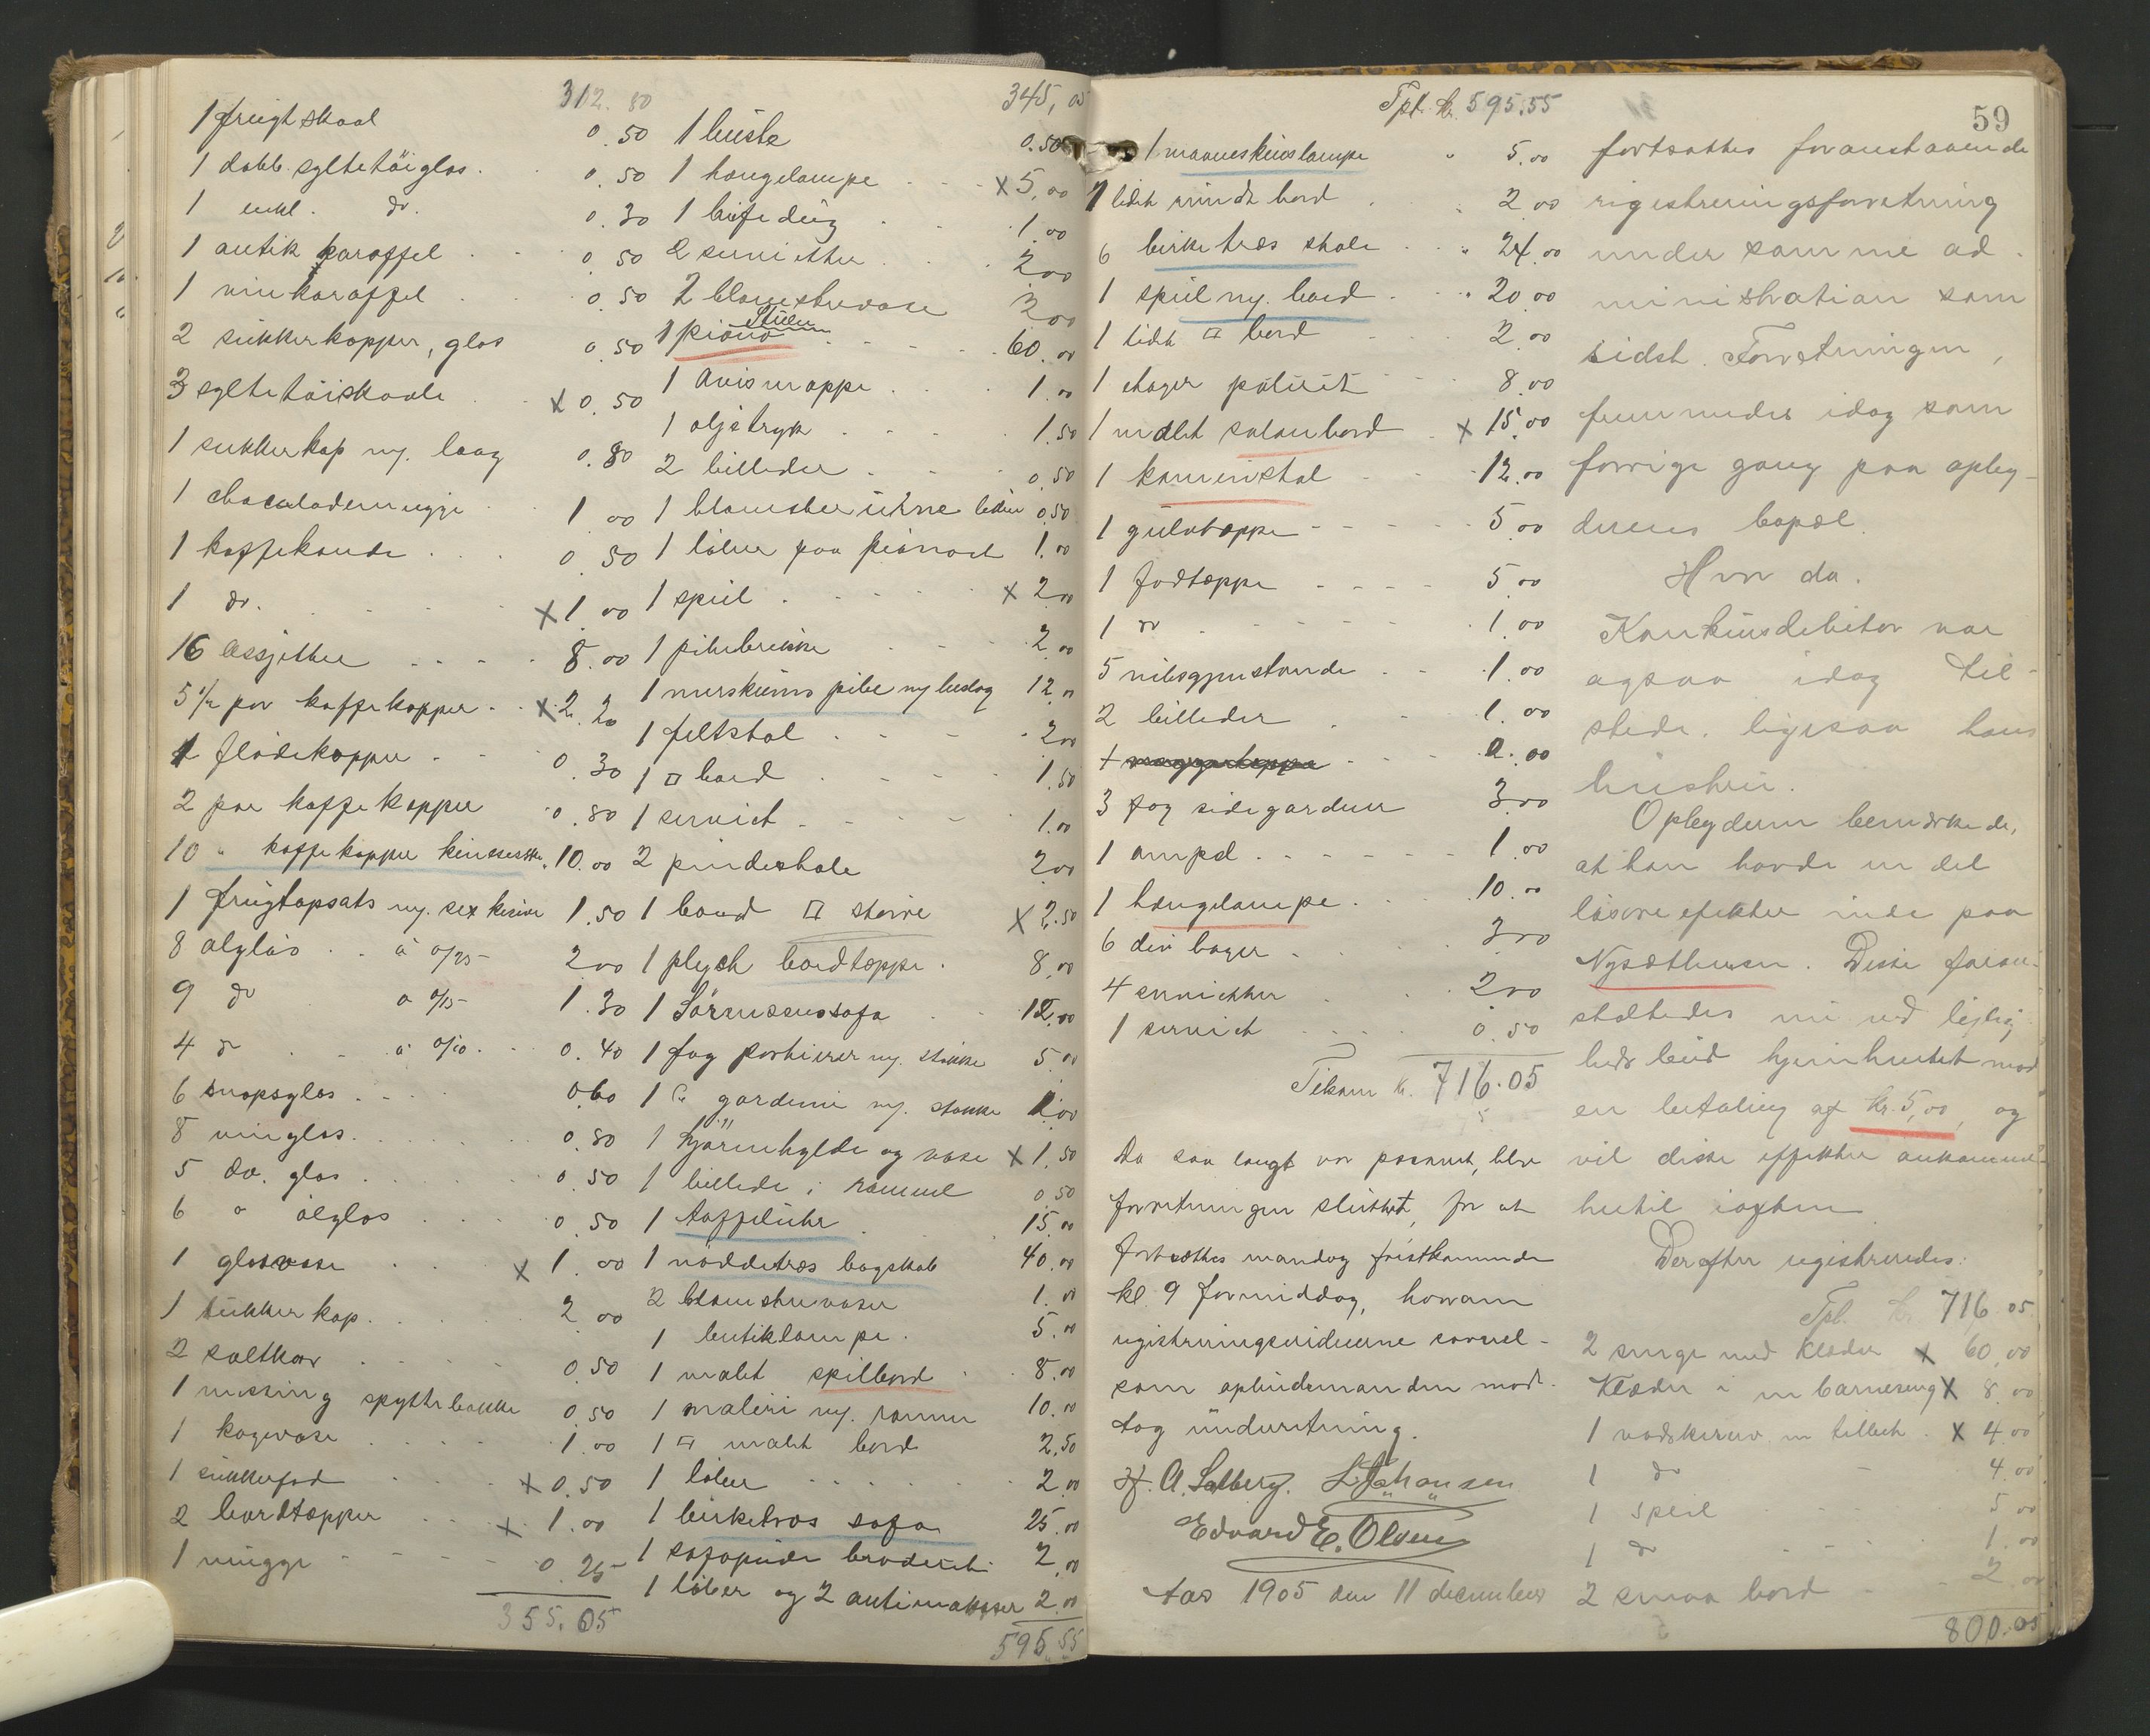 312.80
1 frugtskaal 0.50
1 dobb. syltetöiglas. 0.50
1 enkl. do. 0.30
1 antik karaffel 0.50
1 vinkaraffel 0.50
2 sukkerkopper, glas 0.50
3 syltetöiskaale x 0.50
1 sukkerkop m. laag 0.80
1 chocolademugge 1.00
1 kaffekande 0.50
1 do. x 1.00
16 assjetter 8.00
5 1/2 par kaffekopper x 2.20
1 flödekopper 0.30
2 par kaffekopper 0.80
10 " kaffekopper kinesiske 10.00
1 frugtopsats m. sex knive 1.50
8 ölglas á 0/25 2.00
9 do á 0/15 1.30
4 do á 0/10 0.40
6 snapsglas 0.60
8 vinglas 0.80
5 do. glas 0.50
6 " ölglas 0.50
1 glasvase x 1.00
1 sukkerkop 2.00
2 saltkar 0.50
1 messing spyttebakke 0.50
1 kagevase 1.00
1 sukkerfad x 0.50
2 bordtæpper x 1.00
1 mugge 0.25
355.05
345,05
1 buste 0.50
1 hængelampe x 5.00
1 bufedug 1.00
2 servietter 2.00
2 blomstervase 2.00
1 piano Stuen 60.00
1 avismappe 1.00
1 oljetryk 1.50
2 billeder 0.50
1 blomsterurne liden 0.50
1 löber paa pianoet 1.00
1 speil x 2.00
1 pibebrikke 2.00
1 merskums pibe m beslag 12.00
1 feltstol 2.00
1 □ bord 1.50
1 serviet 1.00
2 pindestole 2.00
1 bord □ större x 2.50
1 plysh bordtæppe 8.00
1 Sörensensofa 12.00
1 fag portierer m. stokke 5.00
1 gardiner m. stokke 1.00
1 hjörnehylde og vase x 1.50
1 billede i ramme 0.50
1 taffeluhr 15.00
1 nöddetræs bogskab 40.00
2 blomstervaser 1.00
1 butiklampe 5.00
1 malet spillbord 8.00
1 maleri m. ramme 10.00
1 □ malet bord 2.50
1 löber 2.00
1 birketræs sofa 25.00
1 sofapude broderet 2.00
1 löber og 2 antimakasser 2.00
595.55
59
Tpt. kr. 595.55
1 maaneskinslampe 5.00
1 lidet rundt bord 2.00
6 birketræs stole 24.00
1 speil m. bord 20.00
1 lidet □ bord 2.00
1 etager poleret 8.00
1 malet salonbord x 15.00
1 kaminstol 12.00
1 gulvtæppe 5.00
1 fodtæppe 5.00
1 do 1.00
5 nipsgjenstande 1.00
2 billeder 1.00
3 fag sidegardiner 3.00
1 ampel 1.00
1 hængelampe 10.00
6 div bøger 3.00
4 servietter 2.00
1 serviet 0.50
Tilsam kr. 716.05
Da saa langt var passeret, blev
forretningen sluttet, for at
fortsættes mandag förstkommende
kl. 9 formiddag, hvorom
registreringsvidnerne samt
som opbudsmanden mod-
tog underretning.
H. A. Solberg. L. Johansen
Edvard E. Olsen
Aar 1905 den 11 december
fortsattes foranstaaende
registreringsforretning
under samme ad-
ministration som
sidst. Forretningen
fremmedes idag som
forrige gang paa opby-
derens bopæl.
Hvor da.
Konkursdebitor var
ogsaa idag til-
stede, ligesaa hans
hustru.
Opbyderen bemærkede,
at han havde en del
lösöre efekter inde paa
Nysætteren. Disse foran-
staltedes nu ved leilig
heds bud hjemhentet mod
en betaling af kr. 5,00, og
vil disse effekter ankomme
hertil iaften
Derefter registreredes:
Tpt. kr 716.05
2 senge med klæder x 60,00
Klæder i en barneseng x 8.00
1 vadskeserv. m tilbeh. x 4.00
1 do 4.00
1 speil 5.00
1 do 1.00
2 smaa bord 2.00
800.05